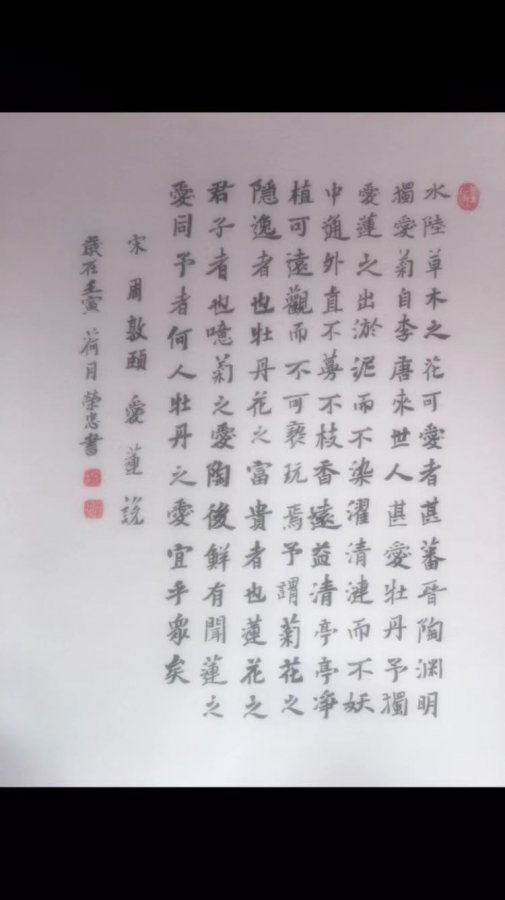 水陸草木之花可愛者甚蕃晉陶渊明
獨愛菊自李唐來世人甚愛牡丹予獨
愛蓮之出淤泥而不染濯清漣而不妖
中通外直不蔓不枝香遠益清亭亭凈
植可遠觀而不可褻玩焉予謂菊花之
隱逸者也牡丹花之富貴者也蓮花之
君子者也噫菊之愛陶後鮮有聞蓮之
愛同予者何人牡丹之愛宜乎眾矣
宋周敦頤愛蓮說
歲在壬寅荷月榮忠書